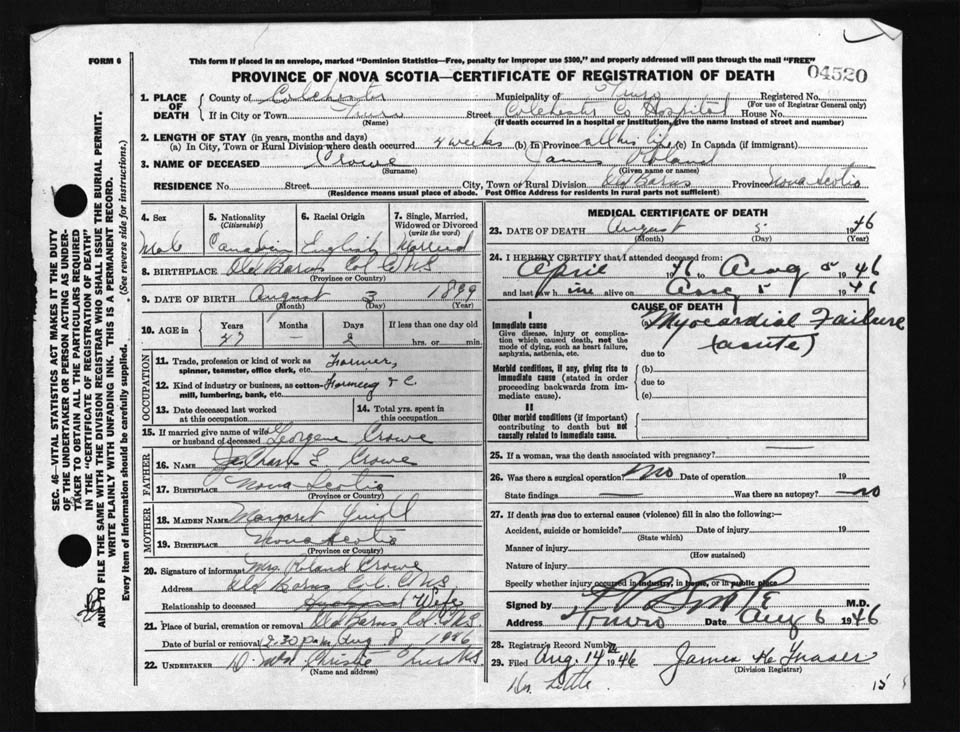 FORM 6
This form if placed in an envelope, marked "Dominion Statistics—Free, penalty for improper use $300," and properly addressed will pass through the mail "FREE"
PROVINCE OF NOVA SCOTIA—CERTIFICATE OF REGISTRATION OF DEATH
04520
1. PLACE OF DEATH
County of Colchester Municipality of Truro Registered No.
(For use of Registrar General only)
If in City or Town Truro Street Colchester Co Hospital House No.
(Name) (If death occurred in a hospital or institution, give the name instead of street and number)
2. LENGTH OF STAY (in years, months and days)
(a) In City, Town or Rural Division where death occurred 4 weeks (b) In Province all his life (c) In Canada (if immigrant)
3. NAME OF DECEASED Crowe James Roland
(Surname) (Given name or names)
RESIDENCE No. Street City, Town or Rural Division Old Barns Province Nova Scotia
(Residence means usual place of abode. Post Office Address for residents in rural parts not sufficient)
4. Sex
Male
5. Nationality
(Citizenship)
Canadian
6. Racial Origin
English
7. Single, Married, Widowed or Divorced
(write the word)
Married
8. BIRTHPLACE Old Barns Col. Co N.S.
9. DATE OF BIRTH August 3
(Month) (Day) (Year)
10. AGE in
Years
Months
Days
If less than one day old
47 — 2 hrs. or min.
OCCUPATION
11. Trade, profession or kind of work as spinner, teamster, office clerk, etc. Farmer,
12. Kind of industry or business, as cotton-mill, lumbering, bank, etc. Farming &c.
13. Date deceased last worked at this occupation
14. Total yrs. spent in this occupation
15. If married give name of wife or husband of deceased Georgene Crowe
FATHER
16. NAME Charles E Crowe
17. BIRTHPLACE Nova Scotia
(Province or Country)
MOTHER
18. MAIDEN NAME Margaret
19. BIRTHPLACE Nova Scotia
(Province or Country)
20. Signature of informant Mrs. Roland Crowe
Address Old Barns Col. Co N.S.
Relationship to deceased Husband Wife
21. Place of burial, cremation or removal Old Barns Col. Co N.S.
Date of burial or removal 2.30 p.m. Aug 8, 1946
22. UNDERTAKER Christie Truro N.S.
(Name and address)
MEDICAL CERTIFICATE OF DEATH
23. DATE OF DEATH August 5 1946
(Month) (Day) (Year)
24. I HEREBY CERTIFY that I attended deceased from:
April 46 to Aug 5 1946
and last saw him alive on Aug 5 1946
CAUSE OF DEATH
I
Immediate cause
Give disease, injury or complication which caused death, not the mode of dying, such as heart failure, asphyxia, asthenia, etc.
(a) Myocardial Failure
(acute)
due to
Morbid conditions, if any, giving rise to immediate cause (stated in order proceeding backwards from immediate cause).
(b)
due to
(c)
II
Other morbid conditions (if important) contributing to death but not causally related to immediate cause.
25. If a woman, was the death associated with pregnancy?
26. Was there a surgical operation? No Date of operation 19
State findings — Was there an autopsy? no
27. If death was due to external causes (violence) fill in also the following:—
Accident, suicide or homicide? Date of injury 19
(State which)
Manner of injury
(How sustained)
Nature of injury
Specify whether injury occurred in industry, in home, or in public place
Signed by M.D.
Address Truro Date Aug 6 1946
28. Registrar's Record Number
29. Filed Aug. 14 1946 James H. Fraser
(Division Registrar)
Dr. Little.
15
SEC. 46—VITAL STATISTICS ACT MAKES IT THE DUTY OF THE UNDERTAKER OR PERSON ACTING AS UNDERTAKER TO OBTAIN ALL THE PARTICULARS REQUIRED IN THE "CERTIFICATE OF REGISTRATION OF DEATH" AND TO FILE THE SAME WITH THE DIVISION REGISTRAR WHO SHALL ISSUE THE BURIAL PERMIT.
WRITE PLAINLY WITH UNFADING INK. THIS IS A PERMANENT RECORD.
Every item of information should be carefully supplied. (See reverse side for instructions.)